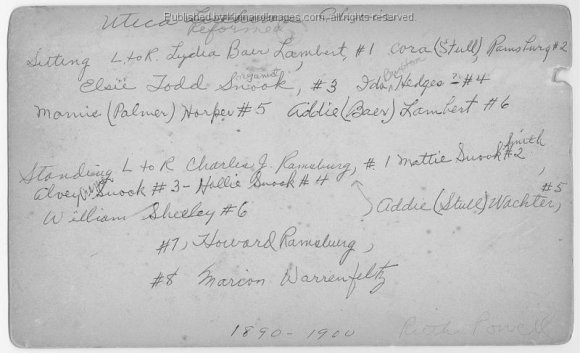 Published by Kinnally Images. All rights reserved.
Utica
Reformed
Sitting L. to R. Lydia Baer Lambert, #1 Cora (Stull) Ramsburg #2
Elsie Todd Snook, #3 Ida Hedges - #4
Mamie (Palmer) Harper #5 Addie (Baer) Lambert #6
Standing L to R Charles J. Ramsburg, #1 Mattie Snook Smith #2,
Alvey Snook #3 - Hollie Snook #4
William Sheeley #6 Addie (Stull) Wachter, #5
#7, Howard Ramsburg,
#8 Marion Warrenfeltz
1890 - 1900 Ruth Powell